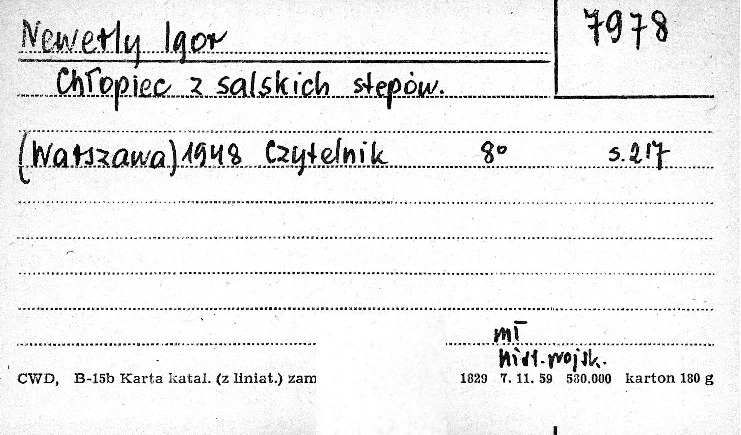 7978
Newerly Igor
Chłopiec z salskich stepów.
(Warszawa) 1948 Czytelnik 8° s. 217
mł
hist. wojsk.
CWD, B-15b Karta katal. (z liniat.) zam 1829 7. 11. 59 530.000 karton 180 g